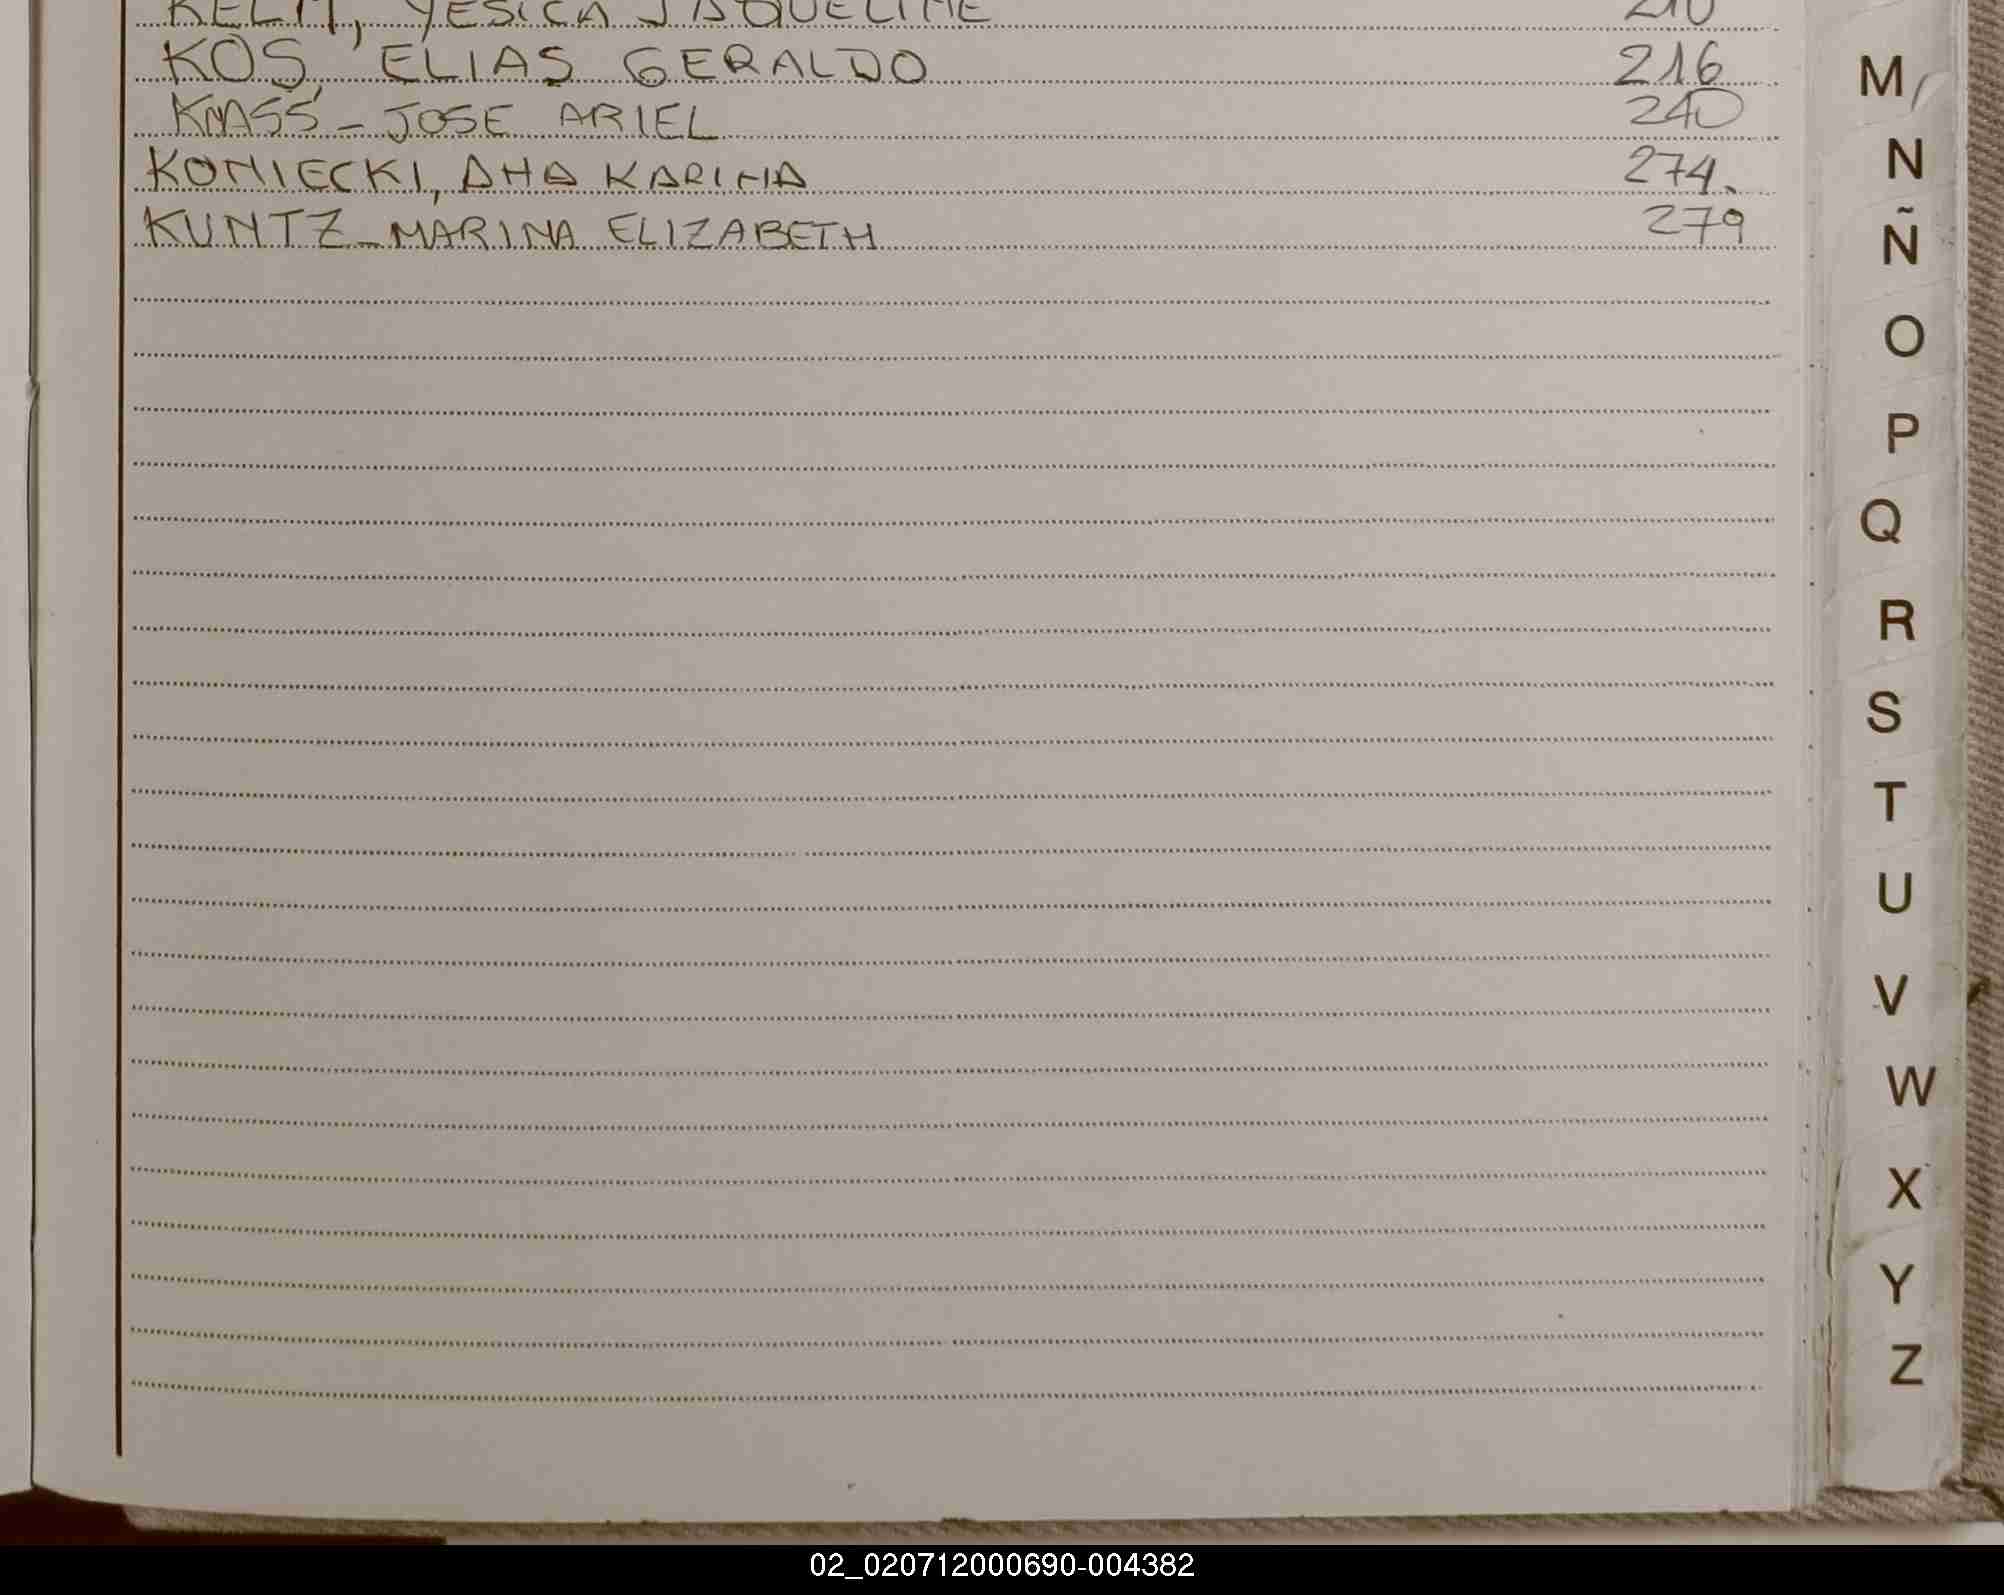 KELM, YESICA JAQUELINE 210
KOS, ELIAS GERALDO 216
KNASS - JOSE ARIEL 240
KONIECKI, ANA KARINA 274.
KUNTZ - MARINA ELIZABETH 279
M
N
Ñ
O
P
Q
R
S
T
U
V
W
X
Y
Z
02_020712000690-004382